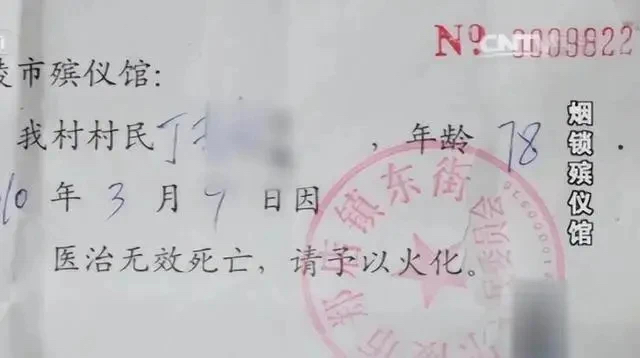 Nº 0009822
CNTV
陵市殡仪馆:
我村村民丁 , 年龄 78 .
年 3 月 9 日因
医治无效死亡, 请予以火化。
镇东街
委员会
烟锁殡仪馆